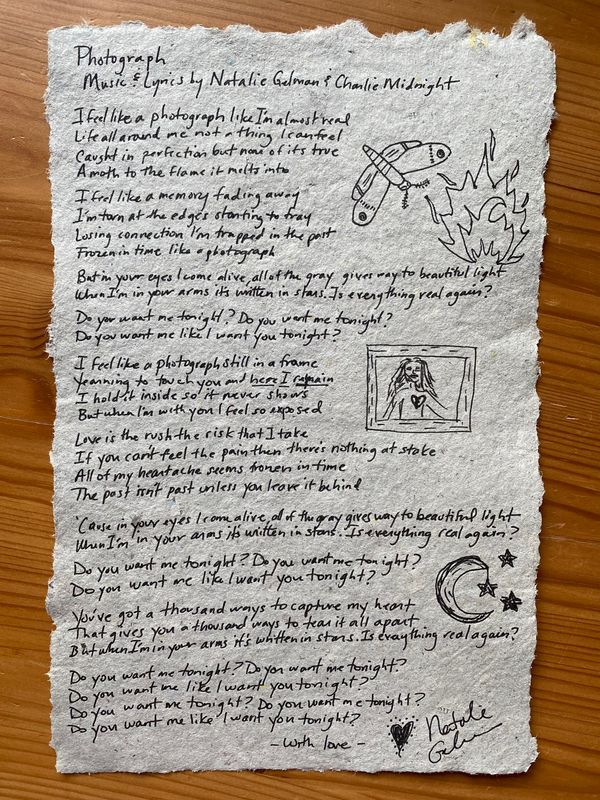 Photograph
Music & Lyrics by Natalie Gelman & Charlie Midnight
I feel like a photograph like I'm almost real
Life all around me not a thing I can feel
Caught in perfection but none of its true
A moth to the flame it melts into
I feel like a memory fading away
I'm torn at the edges starting to fray
Losing connection I'm trapped in the past
Frozen in time like a photograph
But in your eyes I come alive, all of the gray gives way to beautiful light
When I'm in your arms its written in stars. Is everything real again?
Do you want me tonight? Do you want me tonight?
Do you want me like I want you tonight?
I feel like a photograph still in a frame
Yearning to touch you and here I remain
I hold it inside so it never shows
But when I'm with you I feel so exposed
Love is the rush the risk that I take
If you can't feel the pain then there's nothing at stake
All of my heartache seems frozen in time
The past isn't past unless you leave it behind
'Cause in your eyes I come alive, all of the gray gives way to beautiful light
When I'm in your arms its written in stars. Is everything real again?
Do you want me tonight? Do you want me tonight?
Do you want me like I want you tonight?
You've got a thousand ways to capture my heart
That gives you a thousand ways to tear it all apart
But when I'm in your arms it's written in stars. Is everything real again?
Do you want me tonight? Do you want me tonight?
Do you want me like I want you tonight?
Do you want me tonight? Do you want me tonight?
Do you want me like I want you tonight?
- With love -
Natalie
Gelman